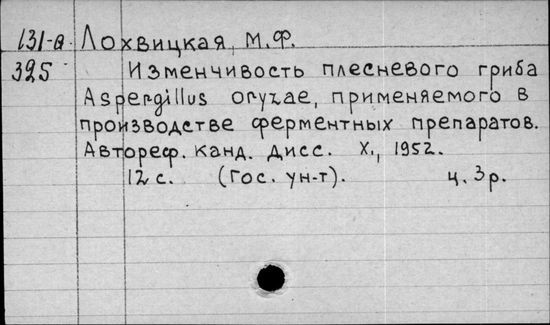 131-а Лохвицкая, М.Ф.
325 Изменчивость плесневого гриба
Aspergillus oryzae, применяемого в
производстве ферментных препаратов.
Автореф. канд. дисс. Х., 1952.
12 с. (Гос. ун-т). ц. 3 р.